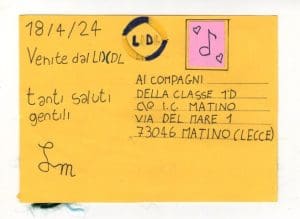 18/4/24
LIDL
Venite dal LIDL
tanti saluti
gentili
Lm
AI COMPAGNI
DELLA CLASSE 1°D
C/O I.C. MATINO
VIA DEL MARE 1
73046 MATINO (LECCE)